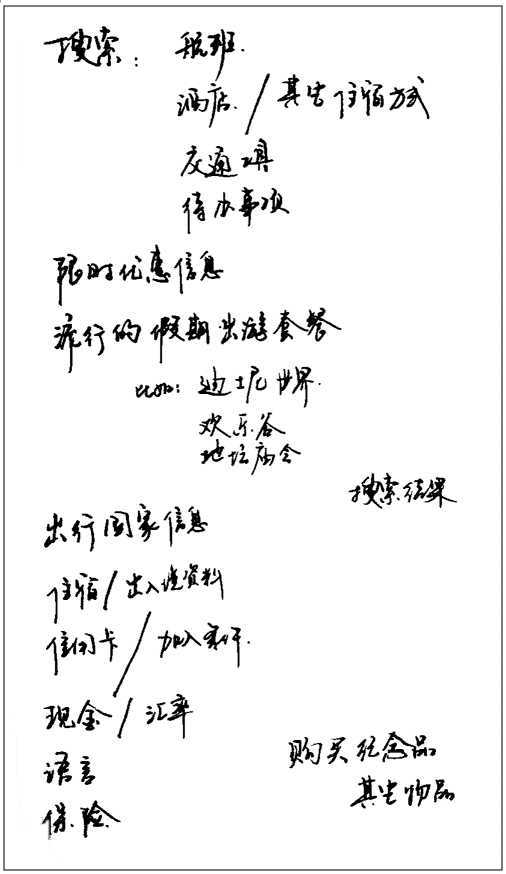 搜索： 航班.
酒店. / 其它住宿方式
交通工具
待办事项
限时优惠信息
流行的假期出游套餐
比如： 迪士尼世界.
欢乐谷
地坛庙会
搜索结果
出行国家信息
住宿 / 出入境资料
信用卡 / 加入
现金 / 汇率
语言
保险
购买纪念品
其它物品